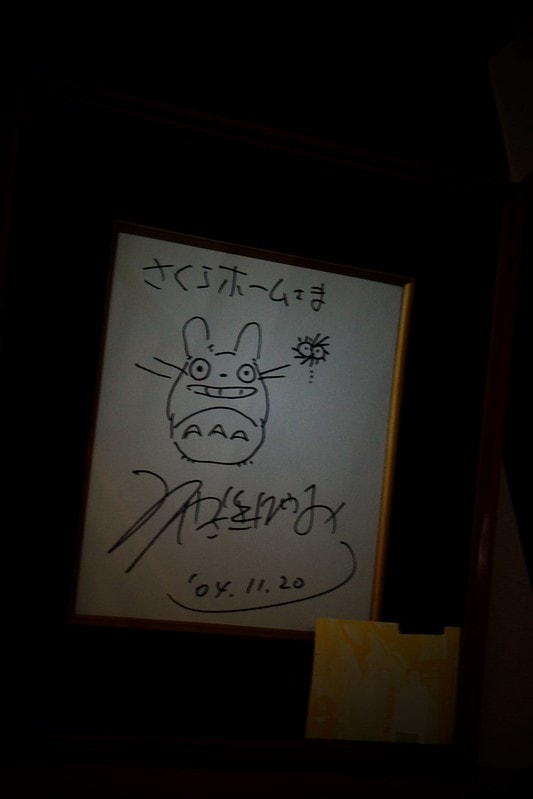 さくらホームさま
'04.11.20